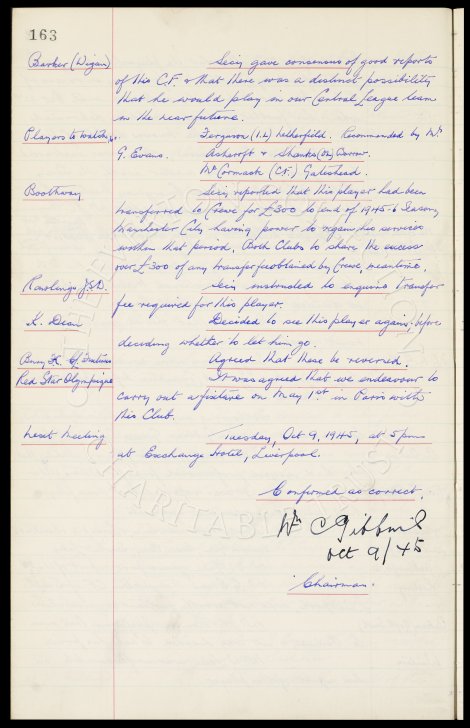 163
Barker (Wigan) Secy gave consensus of good reports
of this C.F. & that there was a distinct possibility
that he would play in our Central League team
in the near future.
Players to watch Ferguson (I.L) Netherfield. Recommended by Mr
G. Evans. Ashcroft & Shanks (OR) Barrow.
McCormack (C.F.) Gateshead.
Boothway Secy reported that this player had been
transferred to Crewe for £300 to end of 1945-6 Season,
Manchester City having power to regain his services
within that period. Both Clubs to share the excess
over £300 of any transfer fee obtained by Crewe, meantime.
Rawlings J.S.D. Secy instructed to enquire transfer
fee required for this player.
K. Dean Decided to see this player again, before
deciding whether to let him go.
Bury Agreed that these be reversed.
Red Star Olympique It was agreed that we endeavour to
carry out a fixture on May 1st in Paris with
this Club.
Next Meeting Tuesday, Oct 9, 1945, at 5 pm
at Exchange Hotel, Liverpool.
Confirmed as correct,
Wm C Gibbins
Oct 9/45
Chairman.
CHARITABLE